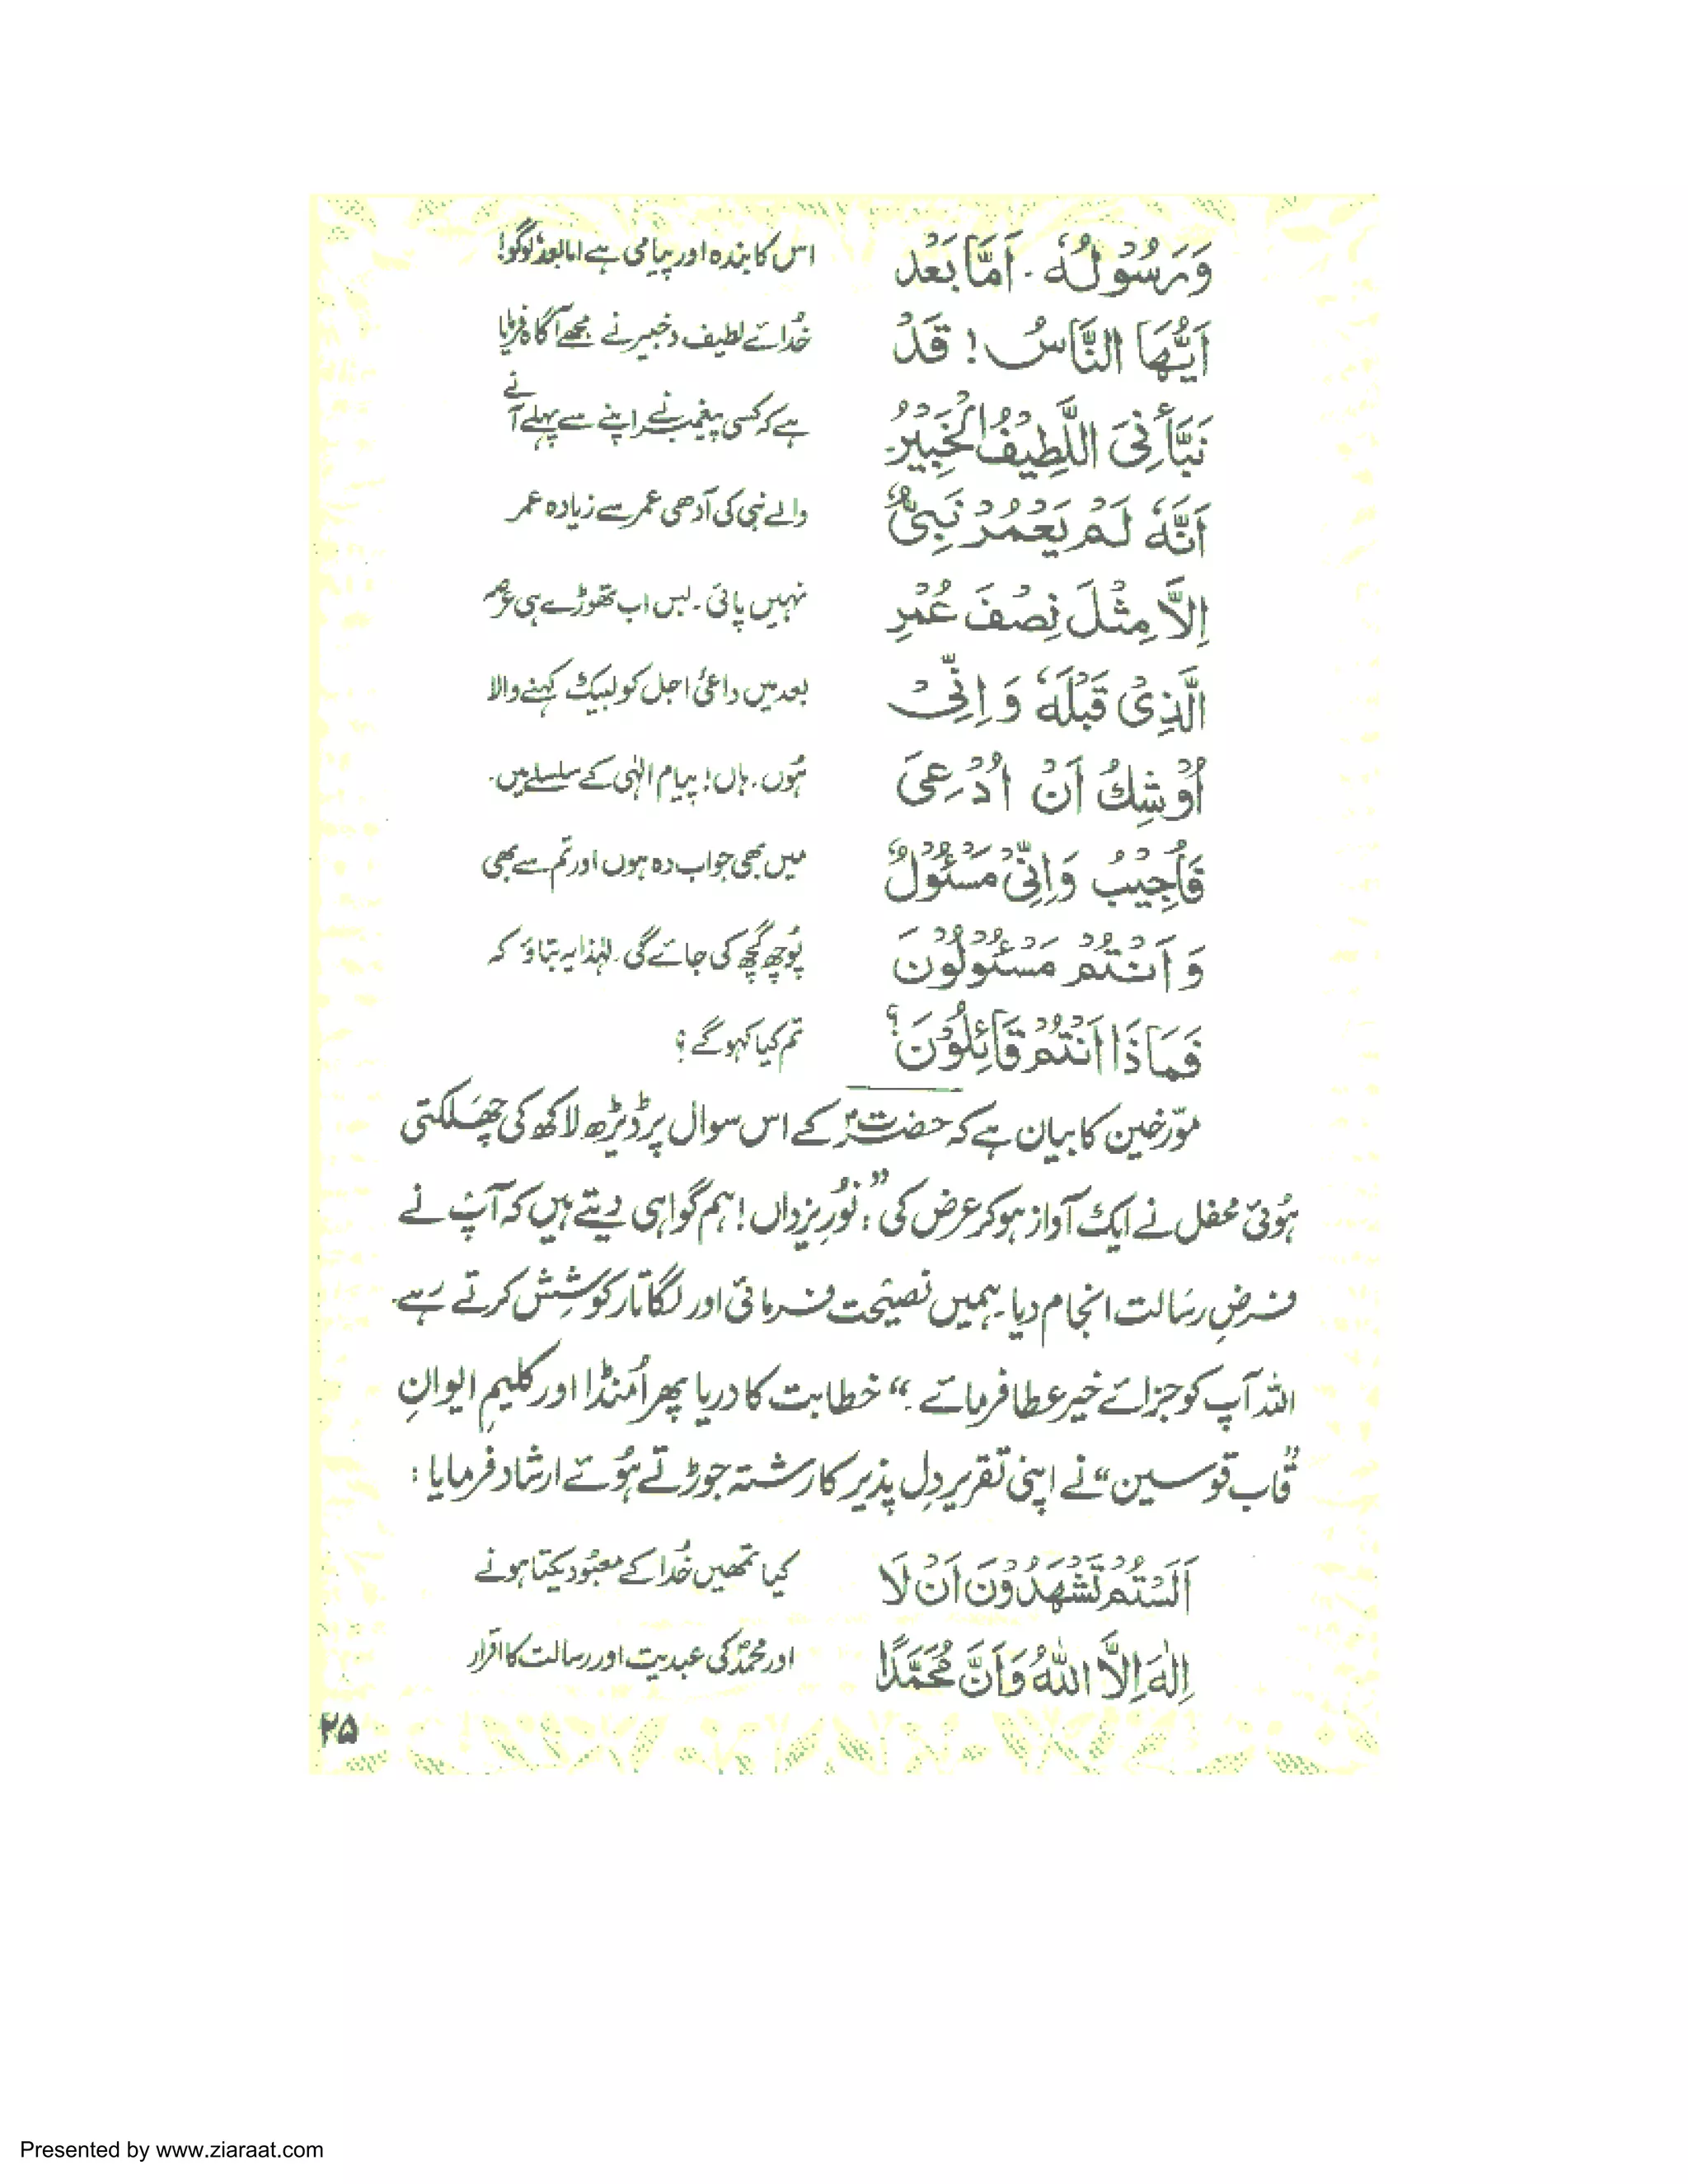 وَرَسُوْلُهٗ . اَمَّا بَعْدُ
اس کا بندہ اور پیامی ہے اما بعد لوگو!
اَيُّهَا النَّاسُ ! قَدْ
خُدائے لطیف وخبیر نے مجھے آگاہ فرمایا
نَبَّأَنِىَ اللَّطِيْفُ الْخَبِيْرُ
ہے کہ کسی پیغمبر نے اپنے سے پہلے آنے
اَنَّهٗ لَمْ يَعْمُرْ نَبِىٌّ
والے نبی کی آدھی عمر سے زیادہ عمر
اِلَّا مِثْلَ نِصْفَ عُمْرِ
نہیں پائی . بس اب تھوڑے ہی عرصہ
الَّذِىْ قَبْلَهٗ وَ اِنِّىْ
بعد میں داعئ اجل کو لبیک کہنے والا
اُوْشِكُ اَنْ اُدْعِىَ
ہُوں . ہاں ! پیام الٰہی کے سلسلے میں .
فَاُجِيْبُ وَاِنِّىْ مَسْئُوْلٌ
میں بھی جواب دہ ہوں اور تم سے بھی
وَ اَنْتُمْ مَسْئُوْلُوْنَ
پُوچھ گچھ کی جائے گی . لہٰذا یہ بتاؤ کہ
فَمَاذَا اَنْتُمْ قَائِلُوْنَ ؟
تم کیا کہو گے ؟
مورّخین کا بیان ہے کہ حضرت کے اس سوال پر ڈیڑھ لاکھ کی چھلکتی
ہُوئی محفل نے ایک آواز ہو کر عرض کی : "نُورِ یزداں ! ہم گواہی دیتے ہیں کہ آپ نے
فرضِ رسَالت انجام دیا . ہمیں نصیحت فرمائی اور لگاتار کوشِشش کرتے رہے .
اللہ آپ کو جزائے خیر عطا فرمائے ." خطابت کا دریا پھر اُمنڈا اور کلیمِ ایوانِ
"قاب قوسین" نے اپنی تقریر دِل پذیر کا رشتہ جوڑتے ہُوئے ارشاد فرمایا :
اَلَسْتُمْ تَشْهَدُوْنَ اَنْ لَا
کیا تمھیں خُدا کے معبُود یکتا ہونے
اِلٰهَ اِلَّا اللهُ وَاَنَّ مُحَمَّدًا
اور محمدؐ کی عبدیت اور رسالت کا اقرار
۲۵
Presented by www.ziaraat.com